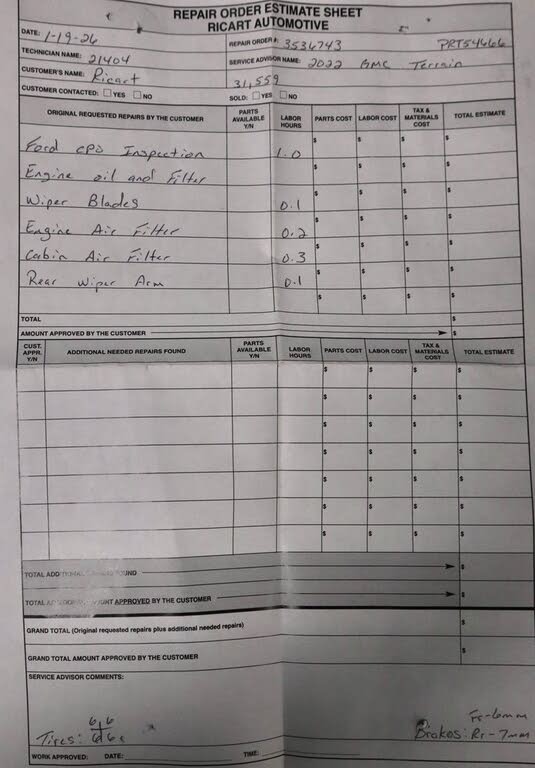 REPAIR ORDER ESTIMATE SHEET
RICART AUTOMOTIVE
DATE: 1-19-26
REPAIR ORDER #: 3536743 PRT54666
TECHNICIAN NAME: 21404
SERVICE ADVISOR NAME: 2022 GMC Terrain
CUSTOMER'S NAME: Ricart
31,559
CUSTOMER CONTACTED: YES NO
SOLD: YES NO
ORIGINAL REQUESTED REPAIRS BY THE CUSTOMER PARTS AVAILABLE Y/N LABOR HOURS PARTS COST LABOR COST TAX & MATERIALS COST TOTAL ESTIMATE
Ford CPO Inspection 1.0 $ $ $ $
Engine oil and Filter $ $ $ $
Wiper Blades 0.1 $ $ $ $
Engine Air Filter 0.2 $ $ $ $
Cabin Air Filter 0.3 $ $ $ $
Rear Wiper Arm 0.1 $ $ $ $
$ $ $ $
TOTAL $
AMOUNT APPROVED BY THE CUSTOMER $
CUST. APPR. Y/N ADDITIONAL NEEDED REPAIRS FOUND PARTS AVAILABLE Y/N LABOR HOURS PARTS COST LABOR COST TAX & MATERIALS COST TOTAL ESTIMATE
$ $ $ $
$ $ $ $
$ $ $ $
$ $ $ $
$ $ $ $
$ $ $ $
$ $ $ $
TOTAL FOUND $
TOTAL APPROVED BY THE CUSTOMER $
GRAND TOTAL (Original requested repairs plus additional needed repairs) $
GRAND TOTAL AMOUNT APPROVED BY THE CUSTOMER $
SERVICE ADVISOR COMMENTS:
6 6
Tires: 6 6
Fr-6mm
Brakes: Rr-7mm
WORK APPROVED: DATE: TIME: